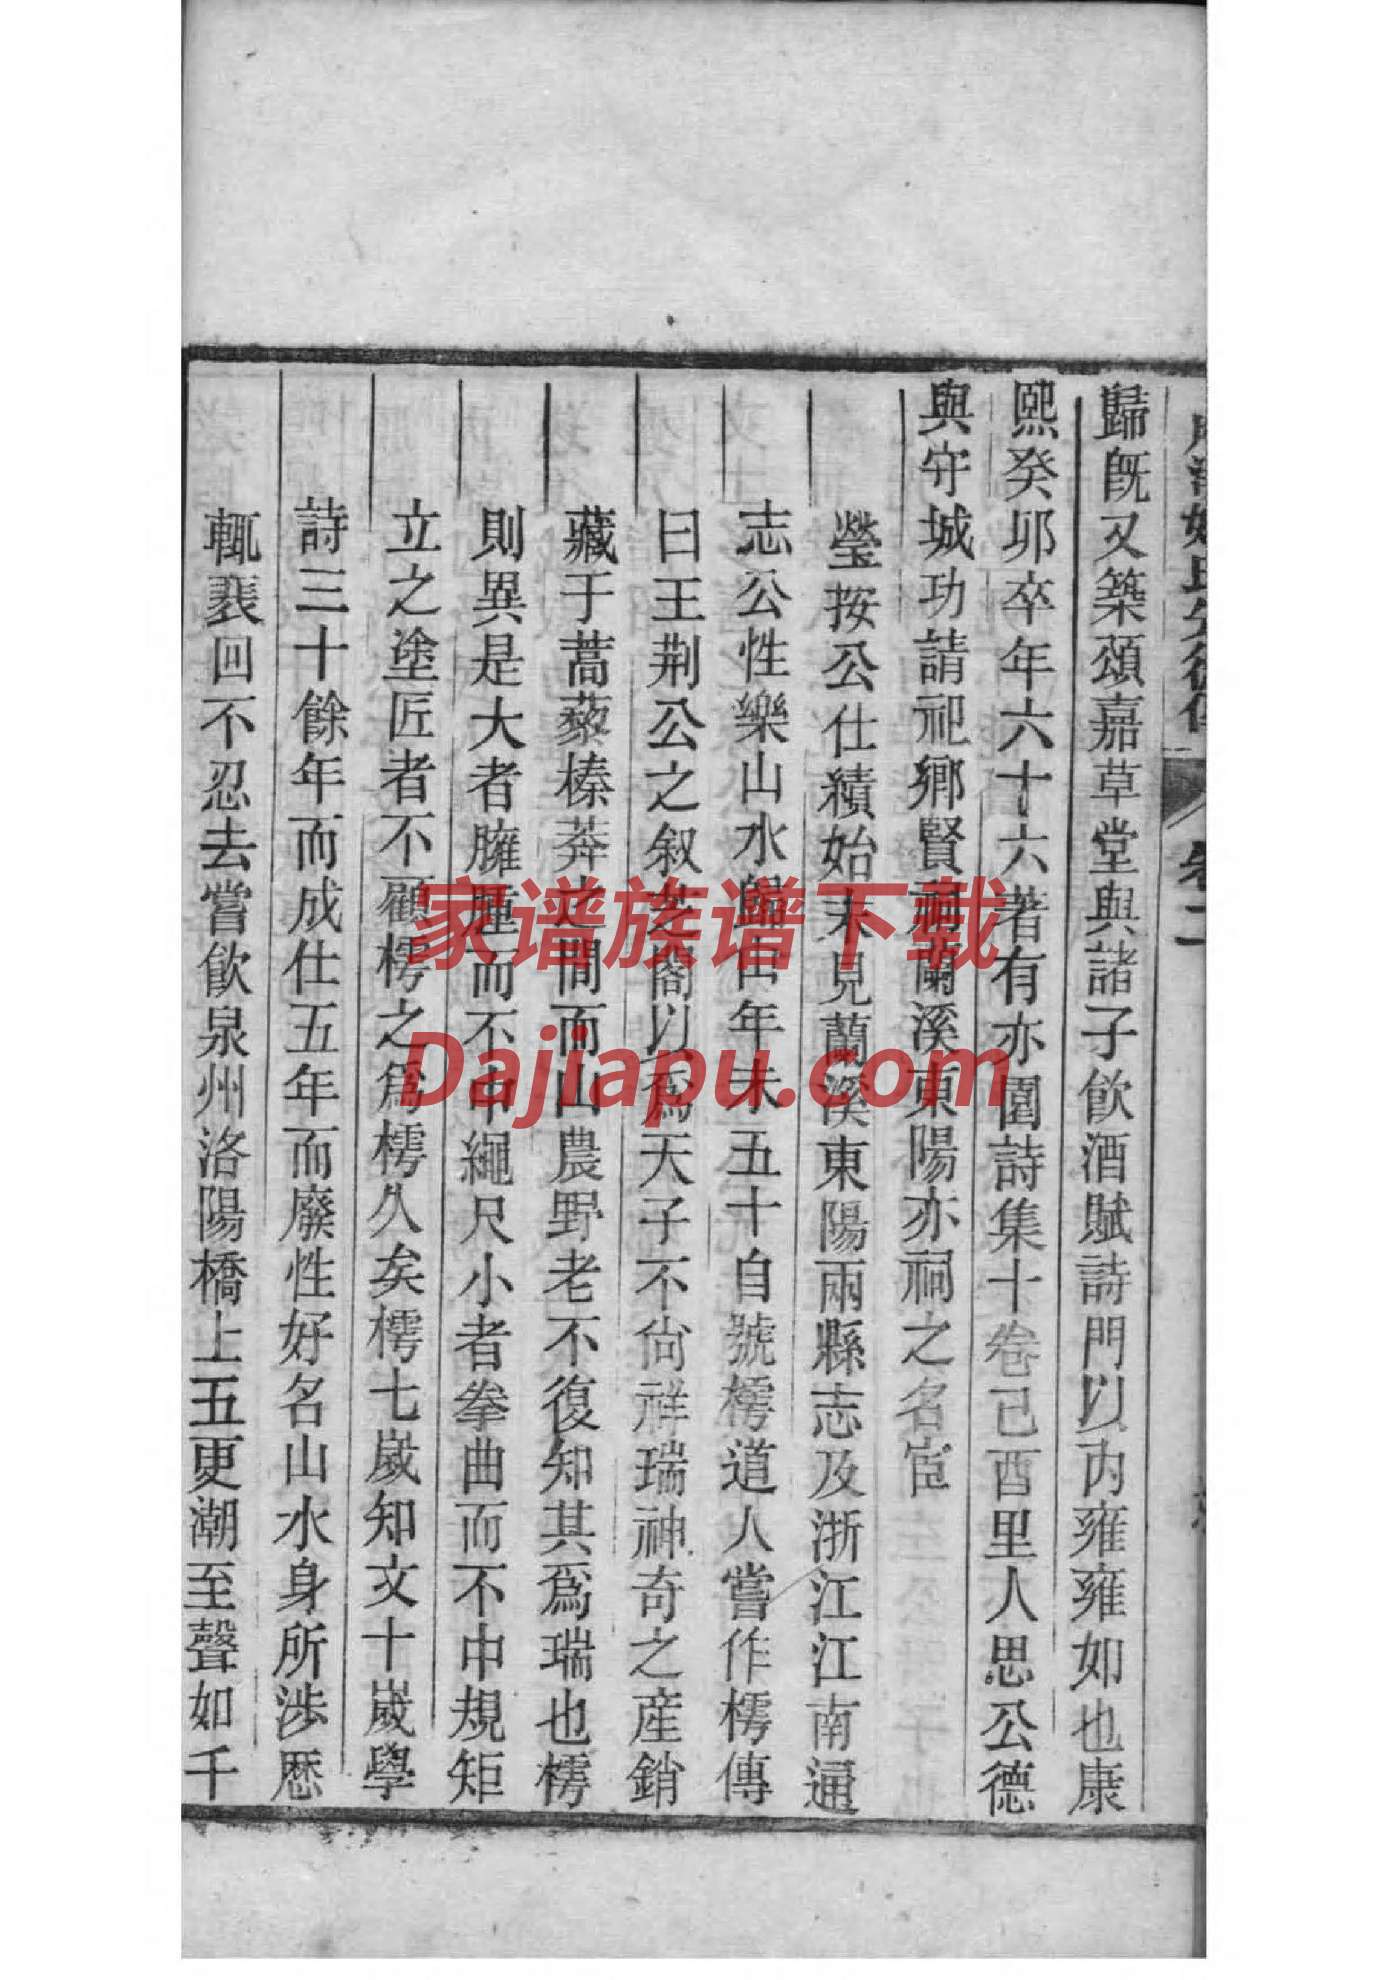 歸既又築頌嘉草堂與諸子飮酒賦詩門以內雍雍如也康
熙癸卯卒年六十六著有亦園詩集十卷己酉里人思公德
與守城功請祀鄉賢祠蘭溪東陽亦祠之名宦
瑩按公仕績始末見蘭溪東陽兩縣志及浙江江南通
志公性樂山水歸田年未五十自號樗道人嘗作樗傳
曰王荆公之叙芝閣以爲天子不尙祥瑞神奇之産銷
藏于蒿藜榛莽之間而山農野老不復知其爲瑞也樗
則異是大者臃腫而不中繩尺小者拳曲而不中規矩
立之塗匠者不顧樗之爲樗久矣樗七歲知文十歲學
詩三十餘年而成仕五年而廢性好名山水身所涉歷
輒裴回不忍去嘗飮泉州洛陽橋上五更潮至聲如千
姚氏先德傳
卷二
家谱族谱下载
Dajiapu.com